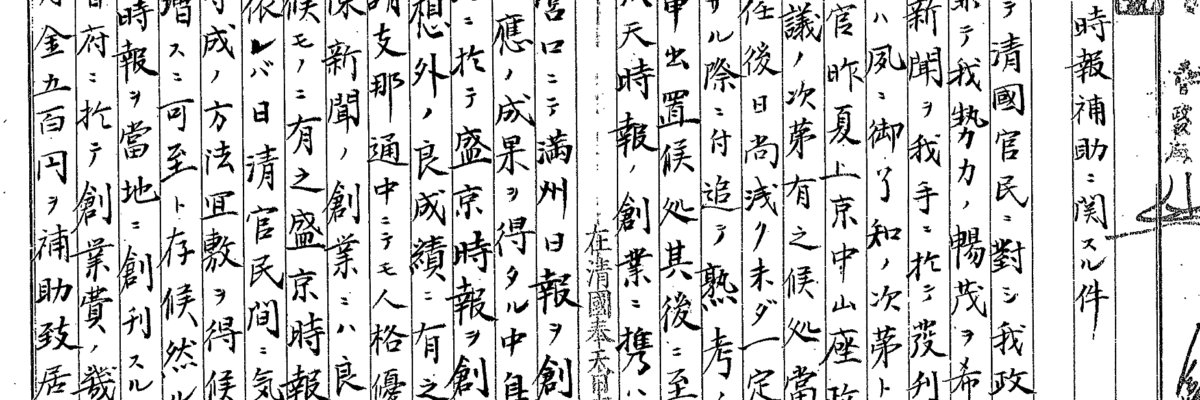 時報補助ニ関スル件
テ清國官民ニ對シ我政
テ我勢力ノ暢茂ヲ希
新聞ヲ我手ニ於テ發刊
ハ夙ニ御了知ノ次第ト
官昨夏上京中山座政
議ノ次第有之候処當
任後日尚浅ク未ダ一定
ル際ニ付追テ熟考ノ
申出置候処其後ニ至
天時報ノ創業ニ携ハ
在清國奉天
営口ニテ満州日報ヲ創
應ノ成果ヲ得タル中自
ニ於テ盛京時報ヲ創
想外ノ良成績ニ有之
支那通中ニテモ人格優
新聞ノ創業ニハ良
候モノニ有之盛京時報
依レバ日清官民間ニ気
成ノ方法宜敷ヲ得候
増スニ可至ト存候然ル
時報ヲ當地ニ創刊スル
府ニ於テ創業費ノ幾
金五百円ヲ補助致居